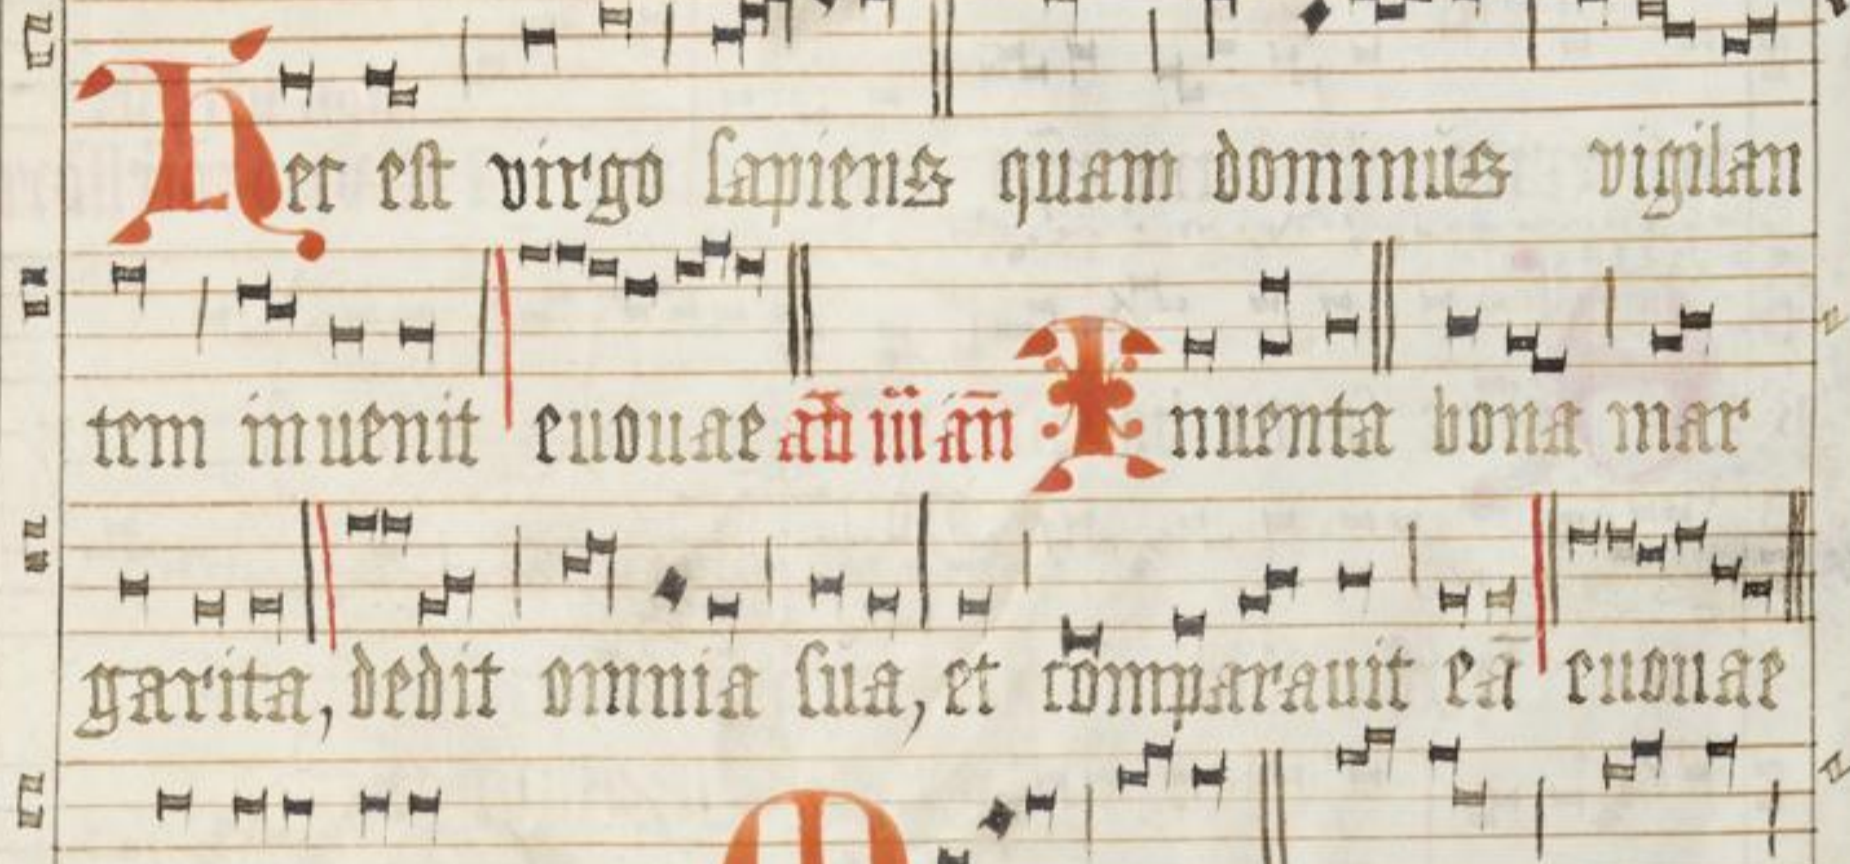 Hec est virgo sapiens quam dominus vigilan
tem inuenit euouae ad iii an̄ Inuenta bona mar
garita, dedit omnia sua, et comparauit eā euouae